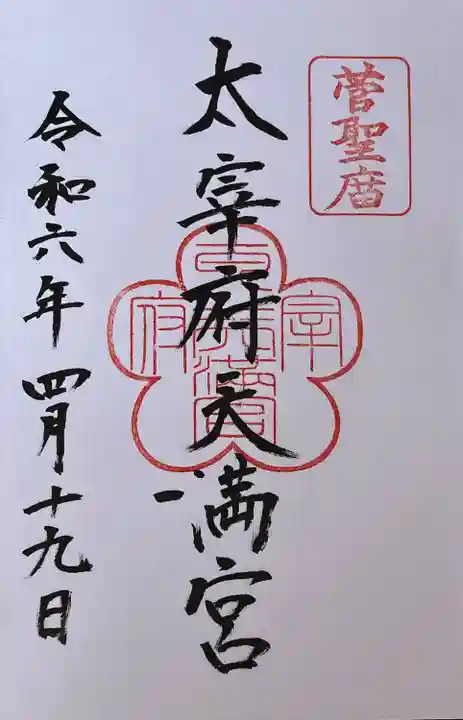 菅聖庿
太宰府天満宮
令和六年四月十九日